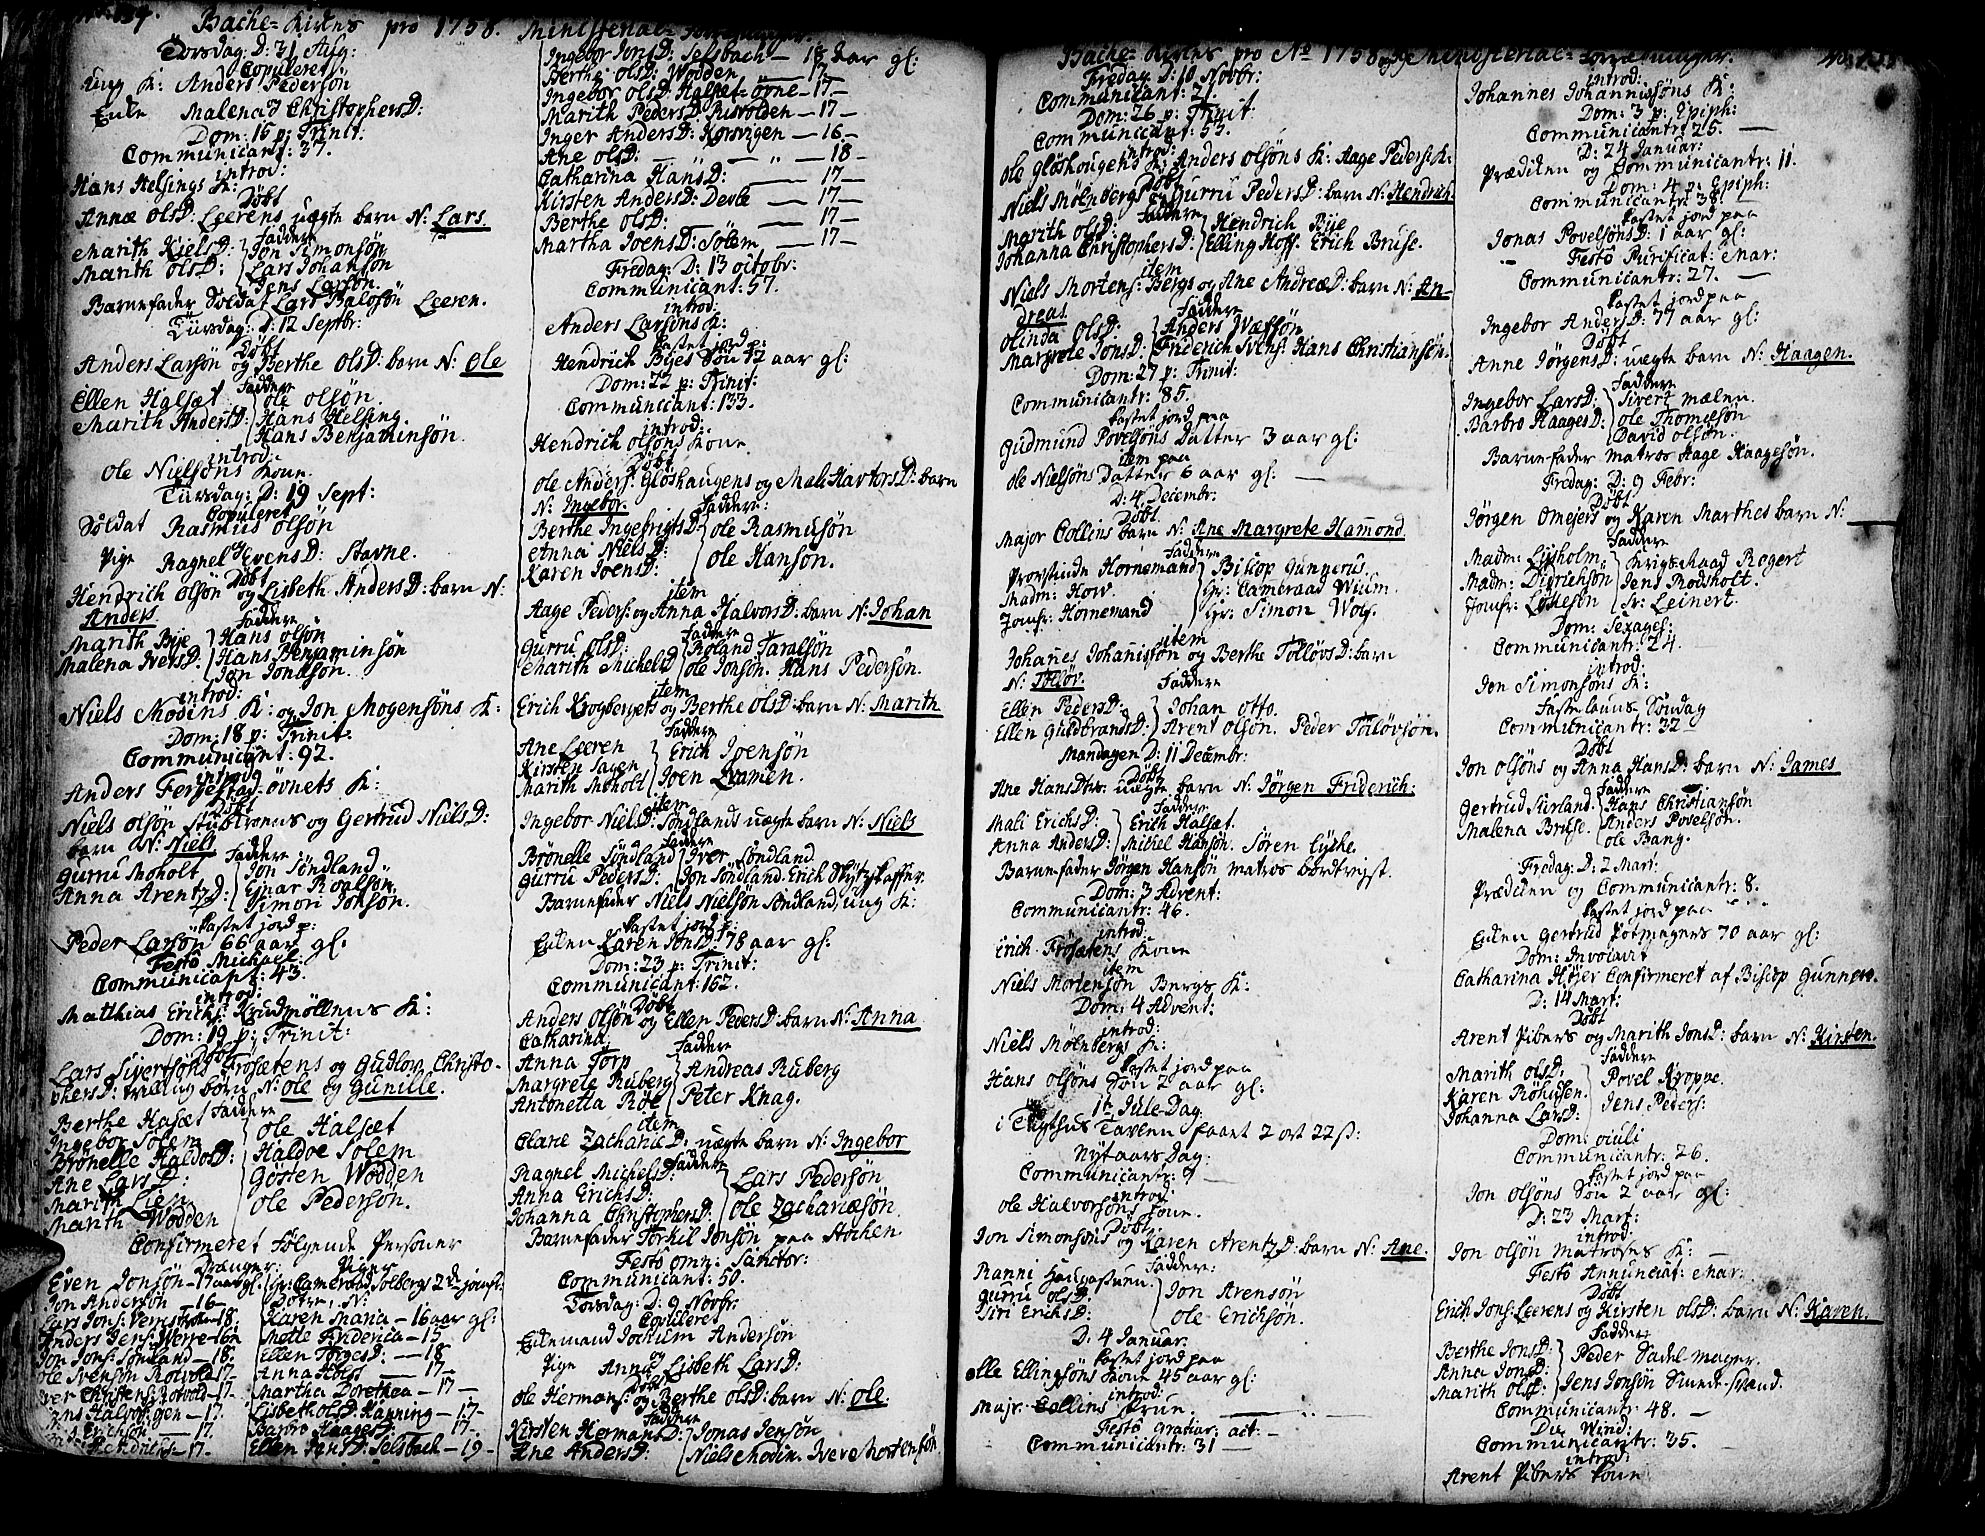 Bache-Kirkes pro 1758. Ministerial-Forretninger.
Torsdag: D: 31 Aug:
Copuleret
Ung K: Anders Pedersön
Enke Malena Christophers D:
Dom: 15 p: Trinit:
Communicant: 37.
introd:
Hans Helsings K:
Döbt
Annæ Ols D: Leerens uægte barn N: Lars.
Faddere
Marith Kiels D: Jon Simonsön
Marith Ols D: Lars Johansön
Jens Larsön.
Barnefader Soldat Lars Baldsön Leeren.
Tiirsdag: D: 12 Septbr:
Döbt
Anders Larsön og Berthe Ols D: barn N: Ole
Faddere
Ellen Halset Ole Olsön.
Marith Anders D: Hans Helsing
Hans Benjaminsön.
introd:
Ole Nielsöns Kone.
Tiirsdag: D: 19 Sept:
Copuleret
Soldat Rasmus Olsön
Pige Ragnel Evens D: Stavne.
Döbt
Hendrich Olsön og Lisbeth Anders D: barn N:
Anders
Faddere
Marith Bye Hans Olsön
Malena Ivers D: Hans Benjaminsön
Jon Jonsön
introd:
Niels Modens K: og Jon Mogensöns K:
Dom: 18 p: Trinit:
Communicant: 92.
introd
Anders Fergestad-övnets K:
Döbt
Niels Olsön Stubrones og Gertrud Niels D:
barn N: Niels
Faddere
Gurru Moholt Jon Söndland
Anna Arentz D: Einar Roalsön.
Simon Jonsön.
Kastet jord p:
Peder Larsön 66 aar gl:
Festo Michael:
Communicant: 43.
introd:
Matthias Erichs: Krudmöllens K:
Dom: 19 p: Trinit:
Döbt
Lars Sivertsöns Frosætens og Gudlov Christo-
phers D: tvilling börn N: Ole og Gunille.
Faddere
Berthe Hasæt Ole Halsæt
Ingebor Solem Haldoe Solem
Brönelle Haldo D: Gösten Wodden
Ane Lars D: Ole Pedersön.
Marith Leen
Marith Wodden
Confirmeret Fölgende Personer
Drænger: Piger
Even Jonsön - 17 aar gl: Hr: Camerraad Solbergs 2de jomfr:
Jon Andersön - 16 - Dötre, N:
Karen Maria - 16 aar gl:
Anders Jens: Werre - 16 - Mette Friderica - 15
Jon Jons: Söndland - 18. Ellen Törges D: - 18
Ole Svensön Rotvold - 17. Anna Holst - 17.
Christens: Rotvold - 17. Martha Dorethea - 17 -
Lisbeth Ols D: Hanning - 17 -
Erichsön - 17. Barbro Haages D: - 17.
- 17. Ellen Jens D: Selsbach - 19 -
Ingebor Jons D: Selsbach - 18 Aar gl:
Berthe Ols D: Wodden - 17 -
Ingebor Ols D: Halset-örne - 17 -
Marith Peders D: Risvolden - 17 -
Inger Anders D: Korsvigen - 16 -
Ane Ols D: - 18 -
Catharina Hans D: - 17 -
Kirsten Anders D: Devle - 17 -
Berthe Ols D: - 17 -
Martha Joens D: Solem - 17 -
Fredag: D: 13 octobr:
Communicant: 57.
introd:
Anders Larsöns K:
Kastet jord p:
Hendrich Byes Sön 12 aar gl:
Dom: 22 p: Trinit:
Communicant: 133.
introd:
Hendrich Olsöns Kone
Döbt
Ole Anders: Glöshaugens og Mali Havtors D: barn
N: Ingebor.
Faddere:
Berthe Ingebrigts D: Ole Rasmusön
Anna Niels D: Ole Hansön.
Karen Joens D:
item
Aage Peders: og Anna Halvors D: barn N: Johan
Faddere
Gurru Ols D: Roland Taralsön
Marith Michels D: Ole Jonsön. Hans Pedersön.
item
Erich Krogbergets og Berthe Ols D: barn N: Marith
Faddere
Ane Leeren Erich Joensön
Kirsten Sagen Joen Bramen.
Marith Moholt
item
Ingebor Niels D: Söndlands uægte barn N: Niels
Faddere
Brönelle Söndland Iver Söndland
Gurru Peders D: Jon Söndland. Erich Skytzskaffer.
Barnefader Niels Nielsön Söndland, ung K:
Kastet jord p:
Enken Karen Jons D: 78 aar gl:
Dom: 23 p: Trinit:
Communicant: 162.
Döbt
Anders Olsön og Ellen Peders D: barn N: Anna
Catharina.
Faddere
Anna Torp Andreas Ruberg
Margrete Ruberg Peter Knag.
Antonetta Röe
item
Clare Zacharie D: uægte barn N: Ingebor
Faddere
Ragnel Michels D: Lars Pedersön
Anna Erichs D: Ole Zachariæsön.
Johanna Christophers D:
Barnefader Torkil Jonsön paa Stöchen
Festo omn: Sanctor:
Communicant: 50.
Torsdag: D: 9 Novbr:
Copuleret
Enkemand Jochum Andersön
og
Pige Anna Lisbeth Lars D:
Döbt
Ole Hermans: og Berthe Ols D: barn N: Ole.
Faddere
Kirsten Hermans D: Jonas Jensön
Ane Anders D: Niels Moden. Iver Mortensön.
Bache-Kirkes pro Ao 1758 & 59 Ministerial-Forretninger.
Fredag D: 10 Novbr:
Communicant: 21.
Dom: 26 p: Trinit:
Communicant: 53.
introd:
Ole Glöshougens K: Anders Olsöns K: Aage Peders: K:
Döbt
Niels Mölnbergs og Gurru Peders D: barn N: Hendrich
Faddere
Marith Ols D: Hendrich Bye
Johanna Christophers D: Elling Hoff. Erich Bruse.
item
Niels Mortens: Bergs og Ane Andreæ D: barn N: An-
dreas.
Faddere
Olinda Ols D: Anders Wæssön
Margrete Jons D: Friderich Svens: Hans Christiansön.
Dom: 27 p: Trinit:
Communicantr: 85.
Kastet jord paa
Gudmund Povelsöns Datter 3 aar gl:
item paa
Ole Nielsöns Datter 6 aar gl:
D: 4 Decembr:
Döbt
Major Collins barn N: Ane Margrete Hamond.
Faddere
Provstinde Hornemand Biskop Gunnerus
Madm: How Hr: Cameraad Wium
Jomfr: Hornemand Hr: Simon Wolf.
item
Johanes Johanisön og Berthe Tolløvs D: barn
N: Tollöv.
Faddere
Ellen Peders D: Johan Otto.
Ellen Guldbrands D: Arent Olsön. Peder Tollövsön.
Mandagen D: 11 Decembr:
Döbt
Ane Hans Dtr. uægte barn N: Jörgen Friderich:
Faddere
Mali Erichs D: Erich Halsæt.
Anna Anders D: Michel Hansön. Sören Lyche.
Barnefader Jörgen Hansön matros bortreyst.
Dom: 3 Advent:
Communicantr: 46.
introd:
Erich Frösetens Kone
item
Niels Mortensön Bergs K:
Dom: 4 Advent:
introd:
Niels Mölnbergs K:
Kastet jord paa
Hans Olsöns Sön 2 aar gl:
1te Jule-Dag
i Tugthus Tavlen faaet 2 ort 22 ß:
Nytaars Dag:
Communicantr: 9 -
introd:
Ole Halvorsöns Kone.
Döbt
Jon Simonsöns og Karen Arentz D: barn N: Ane.
Faddere:
Ranni Haugastuen. Jon Arensön
Gurru Ols D: Ole Erichsön.
Siri Erichs D:
D: 4 Januar.
Kastet jord paa
Olle Ellingsöns Kone 45 aar gl:
introd:
Majr. Collins Frue.
Festo Gratiar: act:
Communicantr: 31 -
introd:
Johannes Johannissöns K:
Dom: 3 p: Epiph:
Communicantr: 25.
D: 24 Januar:
Prædiken og Communicantr: 11.
Dom: 4 p: Epiph:
Communicantr: 38.
Kastet jord paa
Jonas Povelsöns D: 1 aar gl:
Festo Purificat: Mar:
Communicantr: 27.
Kastet jord paa
Ingebor Anders D: 77 aar gl:
Döbt
Anne Jörgens D: uægte barn N: Haagen.
Faddere
Ingebor Lars D: Sivert Mælen
Barbro Haages D: Ole Thomesön
David Olsön.
Barnefader matros Aage Haagesön.
Fredag: D: 9 Febr:
Döbt
Jörgen Omejers og Karen Marthes barn N:
Faddere
Madm: Lysholm, Krigs-Raad Rogert
Madm: Didrichson Jens Rodsholt.
Jomfr: Löttesön Sr: Leinert.
Dom: Sexages:
Communicantr: 24.
introd:
Jon Simonsöns K:
Fastelauns Söndag
Communicantr: 32
Döbt
Jon Olsöns og Anna Hans D: barn N: James
Faddere
Gertrud Kirland. Hans Christiansön
Malena Bruse. Anders Povelsön.
Ole Bang.
Fredag: D: 2 Mart:
Prædiken og Communicantr: 8.
Kastet jord paa
Enken Gertrud Potmagers 70 aar gl:
Dom: Invocavit
Catharina Höjer Confirmeret af Biscop Gunnerus.
D: 14 Mart:
Döbt
Arent Pibers og Marith Jons D: barn N: Kirsten.
Faddere
Marith Ols D: Povel Kroppe.
Karen Röhusen. Jens Peders:
Johanna Lars D:
Dom: oculi
Communicantr: 26.
Kastet jord paa
Jon Olsöns Sön 2 aar gl:
D: 23 Mart:
introd:
Jon Olsön Matroses K:
Festo Annunciat: Mar:
Döbt
Erich Jons: Leerens og Kirsten Ols D: barn N: Karen.
Faddere
Berthe Jons D: Peder Sadel-mager.
Anna Jons D: Jens Jonsön Smed-Svend.
Marith Ols D:
Communicantr: 48.
Die Virid:
Communicantr: 35.
introd:
Arent Pibers Kone